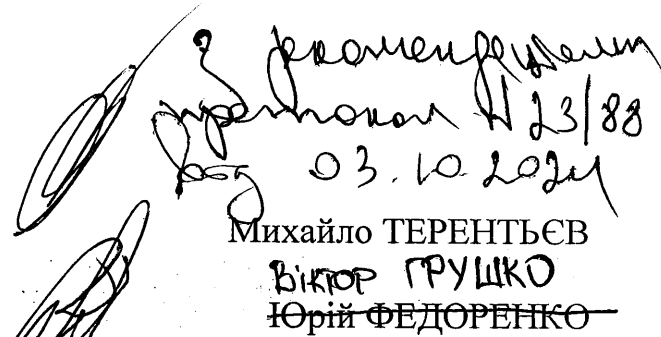 З рекомендаціями
протокол № 23/88
від 03.10.2024
Михайло ТЕРЕНТЬЄВ
Віктор ГРУШКО
Юрій ФЕДОРЕНКО